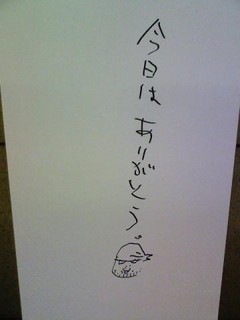 今日は ありがとう。